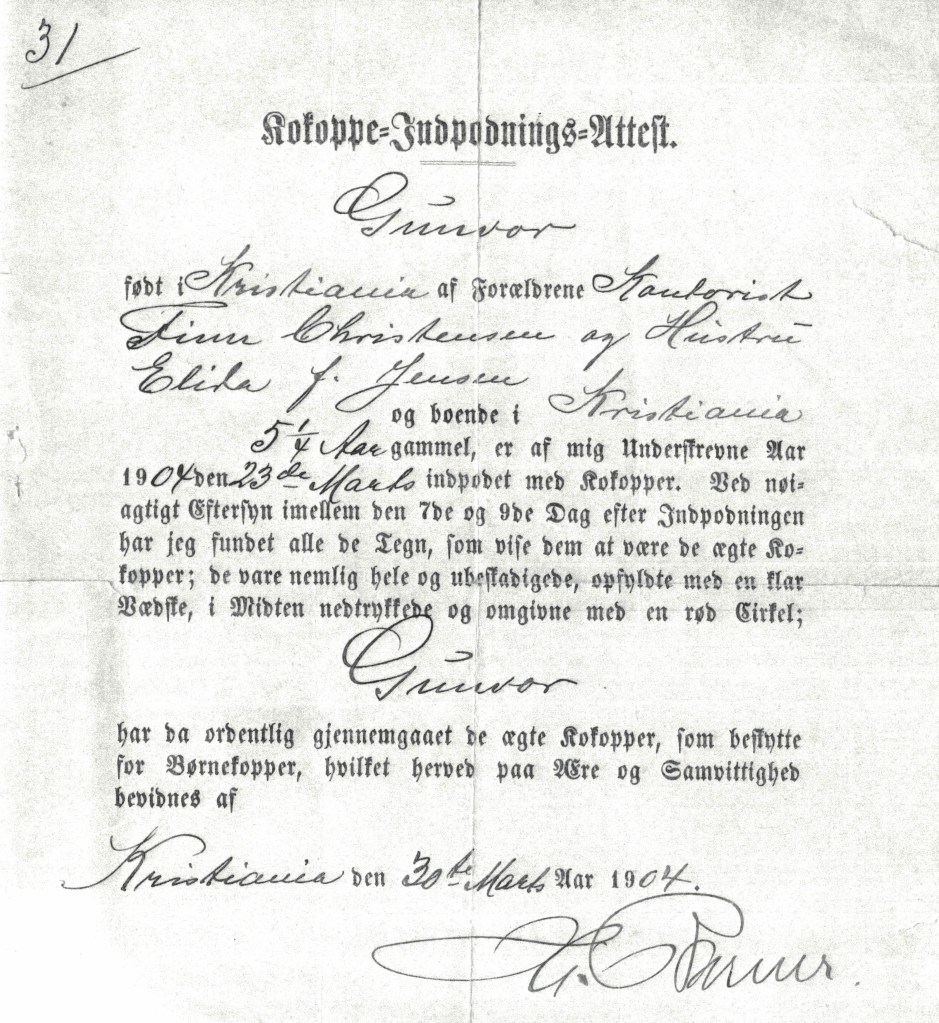 31
Kokoppe-Indpodnings-Attest.
Gunvor
født i Kristiania af Forældrene Kontorist
Finn Christensen og Hustru
Elida f. Jensen
og boende i Kristiania
5 1/4 Aar gammel, er af mig Underskrevne Aar
1904 den 23de Marts indpodet med Kokopper. Ved nøi-
agtigt Eftersyn imellem den 7de og 9de Dag efter Indpodningen
har jeg fundet alle de Tegn, som vise dem at være de ægte Ko-
kopper; de vare nemlig hele og ubeskadigede, opfyldte med en klar
Vædske, i Midten nedtrykkede og omgivne med en rød Cirkel;
Gunvor
har da ordentlig gjennemgaaet de ægte Kokopper, som beskytte
for Børnekopper, hvilket herved paa Ære og Samvittighed
bevidnes af
Kristiania den 30te Marts Aar 1904.